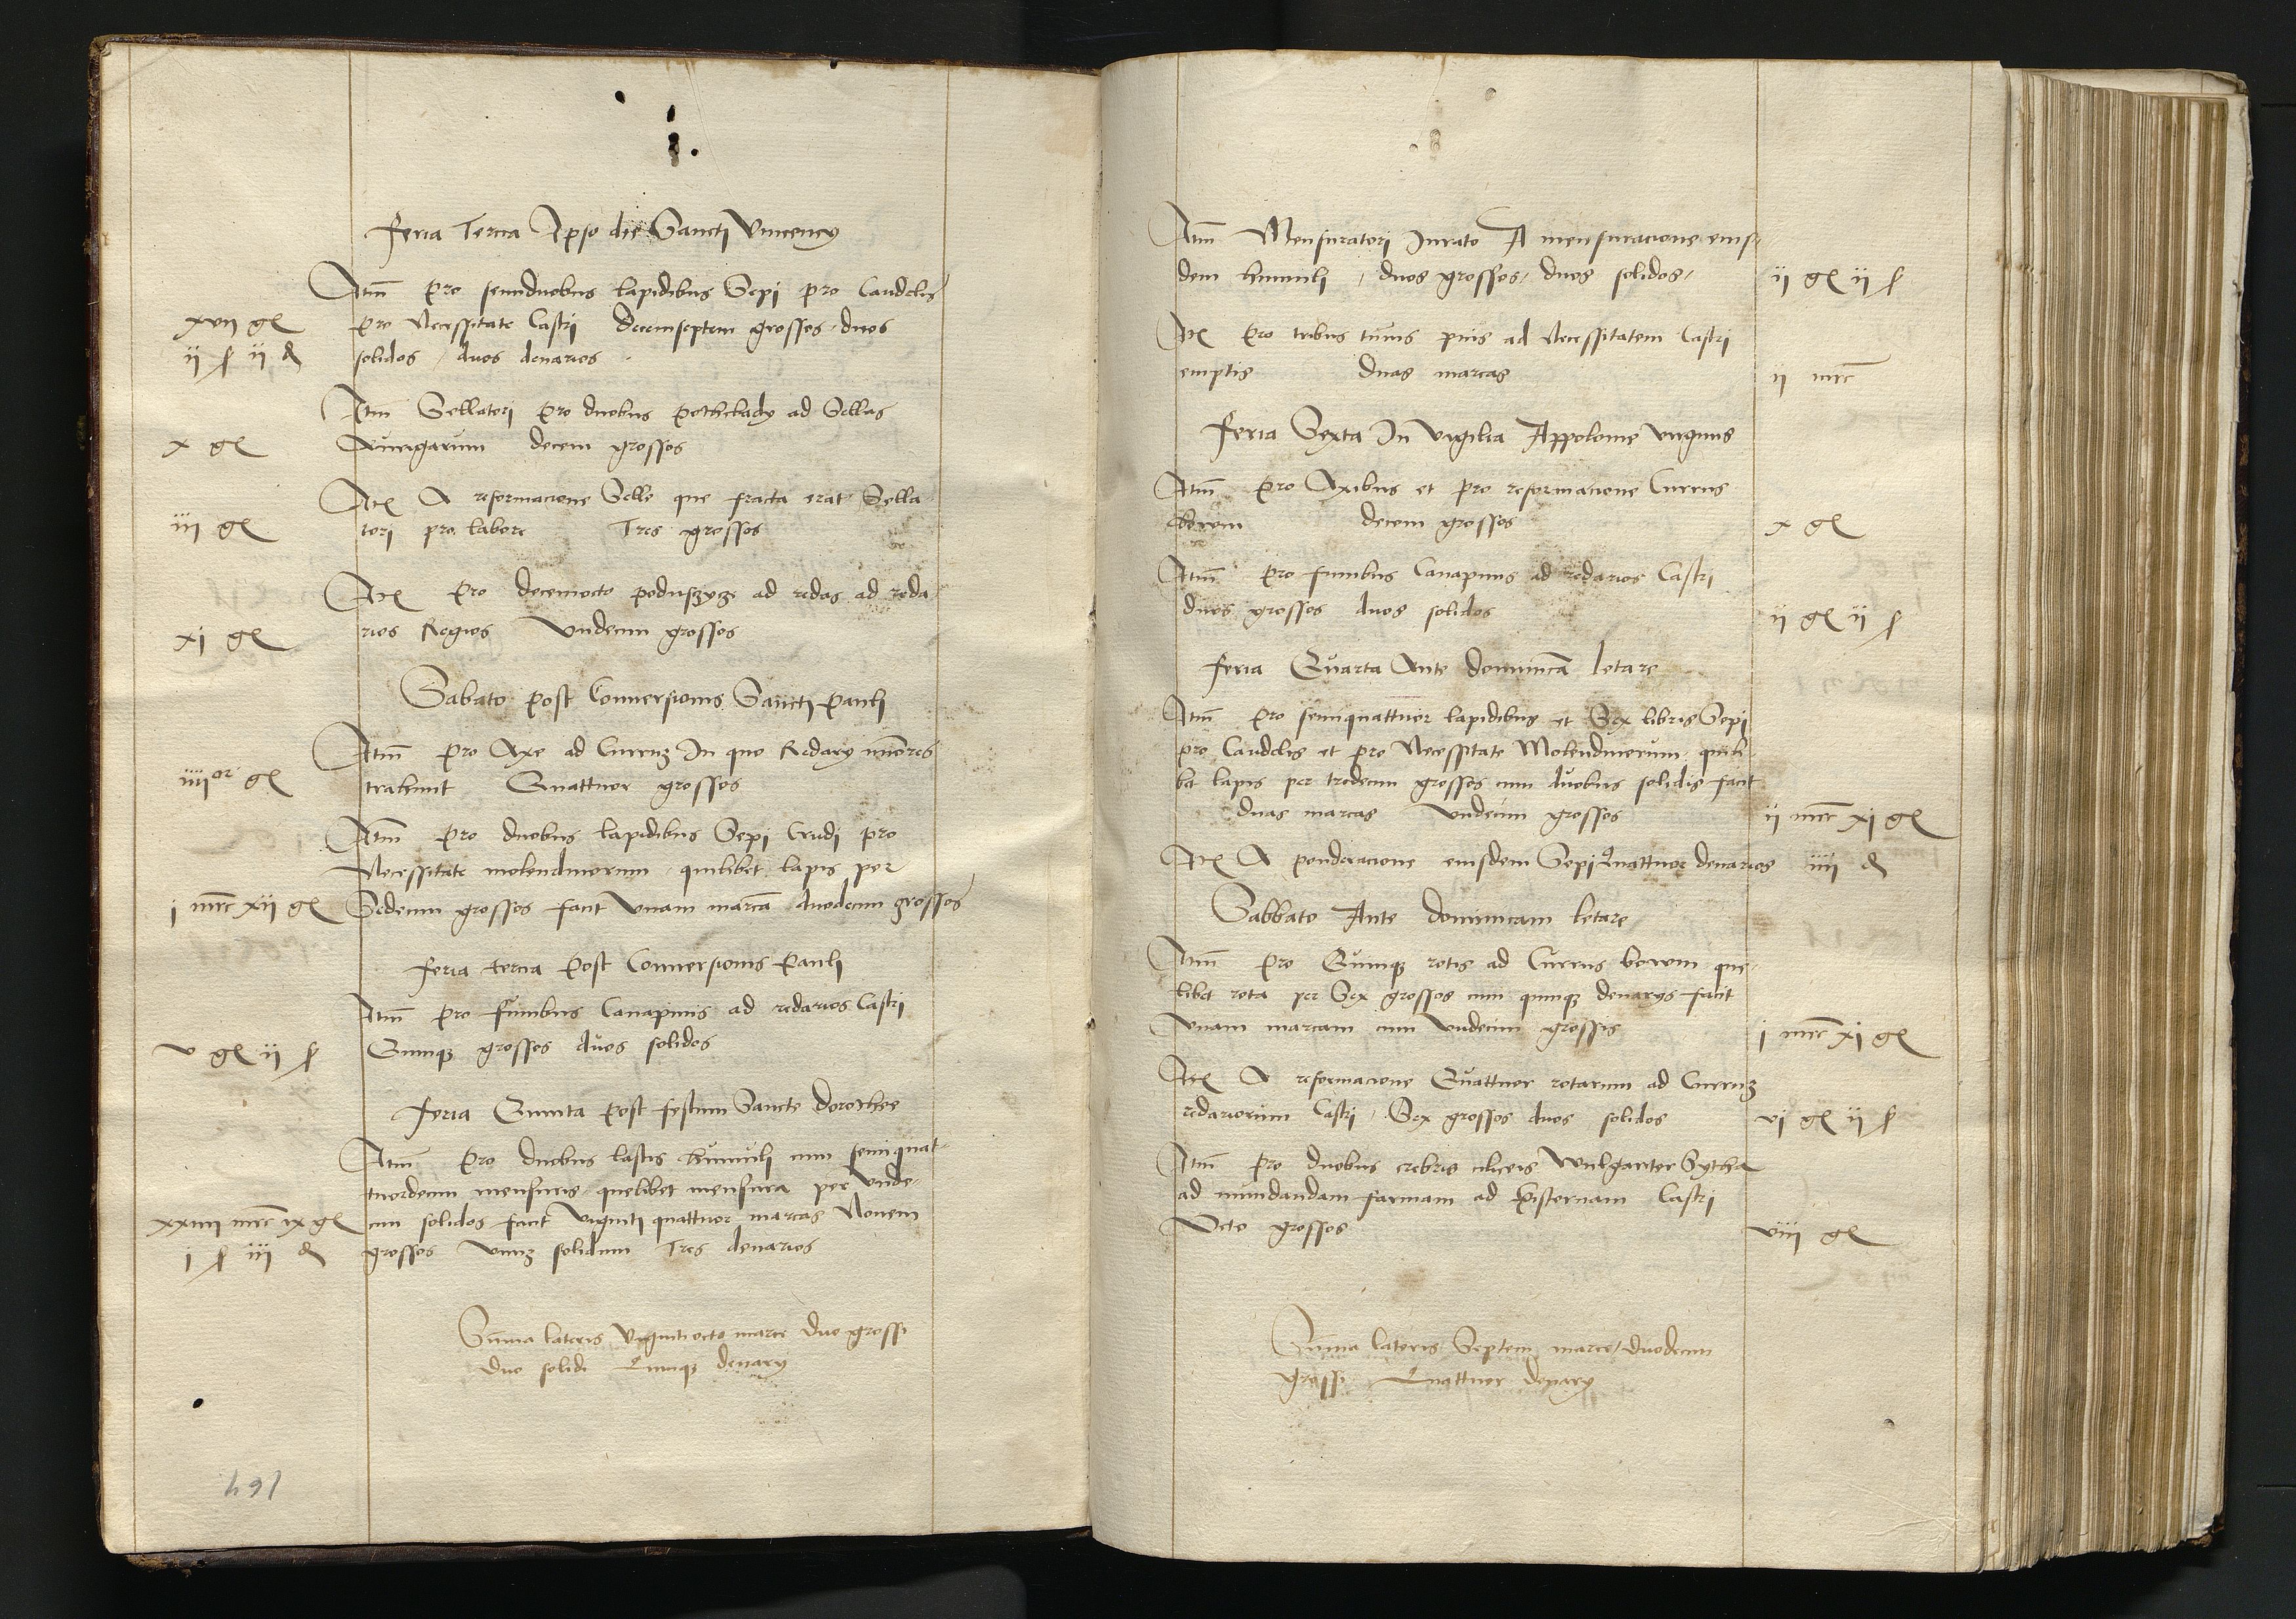 Feria Tercia Ipso die Sancti Vincency
Itm̄ pro semiduobus lapidibus Sepi pro Candelis
xvii gͬ pro Necessitate Castri decemseptem grossos duos
ii s ii d solidos / duos denarios
Itm̄ Sellatori pro duobus potheklady ad Sellas
x gͬ Aurigarum decem grossos
Itͤ A reformacione Selle que fracta erat Sella
iii gͬ tori pro labore Tres grossos
Itͤ pro decemocto poduszycz ad redas ad reda
xi gͬ rios Regios Vndecim grossos
Sabato post Conuersionis Sancti pauli
Itm̄ pro Axe ad Curruȝ In quo Redary minores
iiiiᵒʳ gͬ trahunt Quattuor grossos
Itm̄ pro duobus lapidibus Sepi Crudi pro
Necessitate molendinorum / quilibet lapis per
i mrc xii gͬ Sedecim grossos facit Vnam marcā duodecim grossos
Feria tercia post Conuersionis pauli
Itm̄ pro funibus Canapinis ad redarios Castri
v gͬ ii s Quinqȝ grossos duos solidos
Feria Quinta post festum Sancte dorothee
Itm̄ pro duobus lastis humuli cum semiquat-
tuordecim mensuris / quelibet mensura per Vnde-
xxiiii mrc ix gͬ cim solidos facit Viginti quattuor marcas Novem
i s iii d grossos Vnuȝ solidum Tres denarios
Sūma lateris Viginti octo marce duo grossi
duo solidi Quinqȝ denary
164
Itm̄ Mensuratori Iurato A mensuracione eius-
dem humuli / duos grossos / duos solidos / ii gͬ ii s
Itͤ pro tribus tūnis picis ad Necessitatem Castri
emptis duas marcas ii mrc
Feria Sexta In vigilia Appolonie virginis
Itm̄ pro Axibus et pro reformacione Currus
boum decem grossos x gͬ
Itm̄ pro funibus Canapinis ad redarios Castri
duos grossos duos solidos ii gͬ ii s
Feria Quarta Ante dominicā letare
Itm̄ pro semiquattuor lapidibus et Sex libris Sepi
pro Candelis et pro Necessitate Molendinorum / quili-
bet lapis per tredecim grossos cum duobus solidis facit
duas marcas Vndecim grossos ii mrc xi gͬ
Itͤ A ponderacione eiusdem Sepi Quattuor denarios iiii d
Sabbato Ante dominicam letare
Itm̄ pro Quinqȝ rotis ad Currus boum que-
libet rota per Sex grossos cum quinqȝ denarys facit
Vnam marcam cum Vndecim grossis i mrc xi gͬ
Itͤ A reformacione Quattuor rotarum ad Curruȝ
redariorum Castri / Sex grossos duos solidos vi gͬ ii s
Itm̄ pro duobus crebris Wulgariter Sytha
ad mundandam farinam ad pisternam Castri
Octo grossos viii gͬ
Sūma lateris Septem marce / duodecim
grossi Quattuor denary